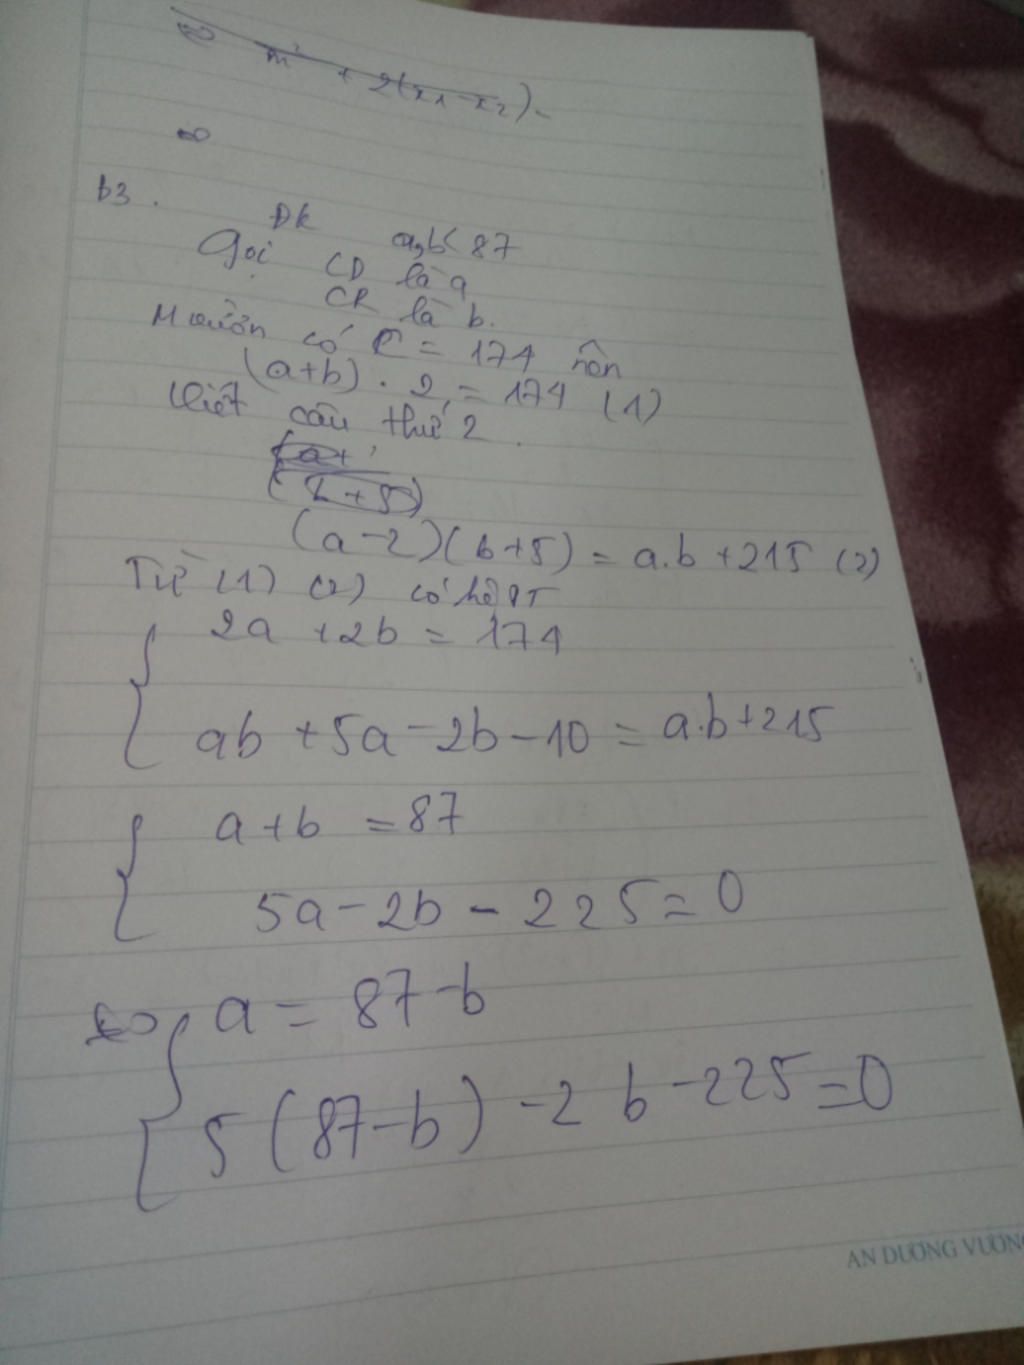 m² + 2(x1-x2)-
b3.
ĐK a,b<87
Gọi CD là a
CR là b.
có C = 174 nên
(a+b).2 = 174 (1)
câu thứ 2.
(a+
(b+5)
(a-2)(b+5) = a.b+215 (2)
Từ (1) (2) có hệ PT
2a +2b = 174
ab +5a-2b-10 = a.b+215
a+b = 87
5a-2b-225=0
a = 87-b
5(87-b) -2b-225=0
AN DƯƠNG VƯƠNG